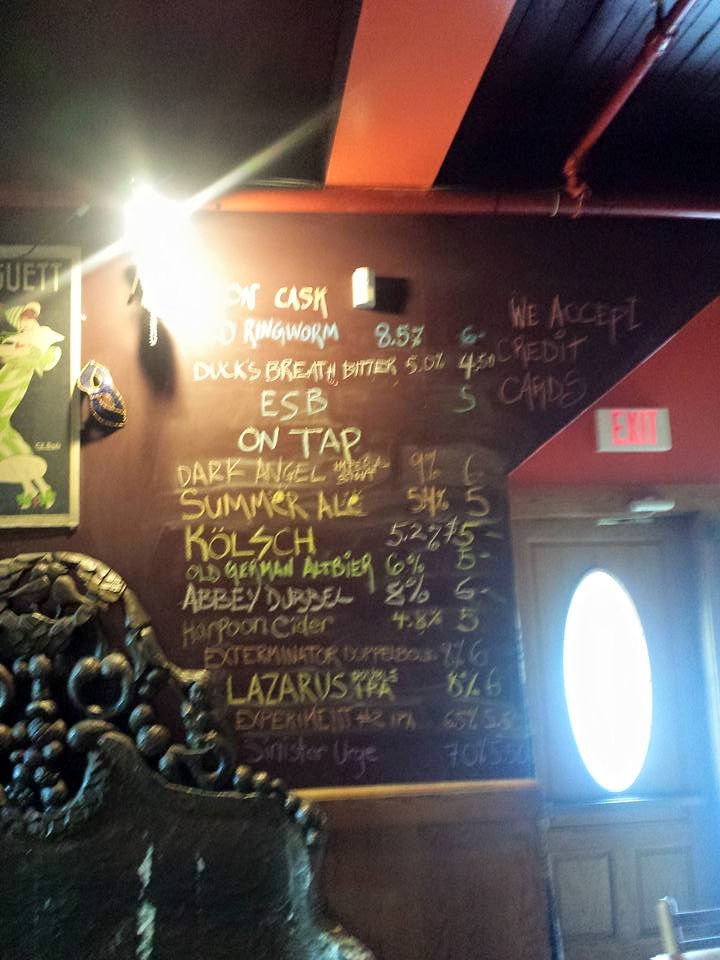 GUETT
ON CASK
RINGWORM 8.5% 6-
DUCK'S BREATH BITTER 5.0% 4.50
ESB 5
ON TAP
DARK ANGEL IMPERIAL STOUT 9% 6
SUMMER ALE 5.4% 5
KÖLSCH 5.2% 5-
OLD GERMAN ALTBIER 6% 5-
ABBEY DUBBEL 8% 6-
Harpoon Cider 4.8% 5
EXTERMINATOR DOPPELBOCK 8% 6
LAZARUS DOUBLE IPA 8% 6
EXPERIMENT #2 IPA 6.5% 5.5
Sinister Urge 7.0% 5.50
WE ACCEPT
CREDIT
CARDS
EXIT